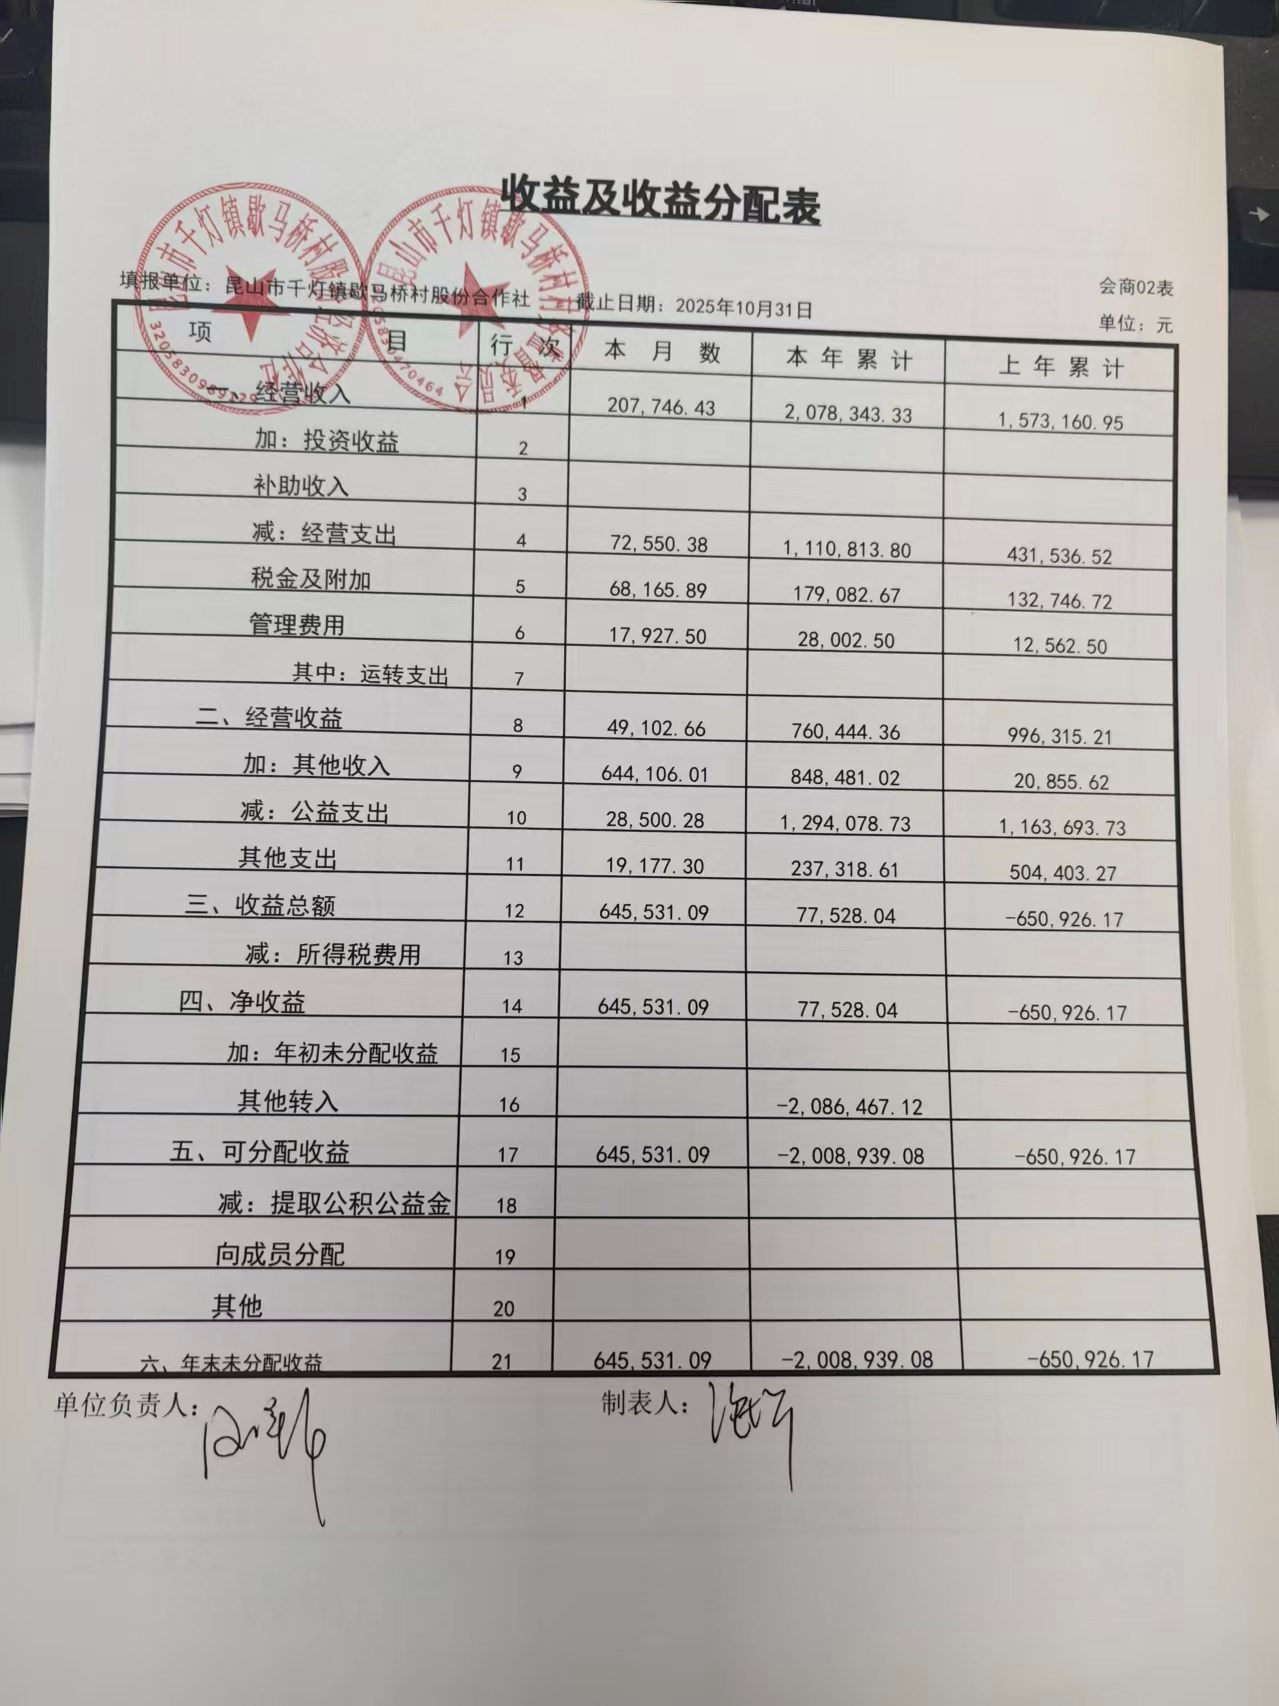 收益及收益分配表
会商02表
填报单位：昆山市千灯镇歇马桥村股份合作社 截止日期：2025年10月31日 单位：元
项 目 行 次 本 月 数 本 年 累 计 上 年 累 计
一、经营收入 1 207,746.43 2,078,343.33 1,573,160.95
加：投资收益 2
补助收入 3
减：经营支出 4 72,550.38 1,110,813.80 431,536.52
税金及附加 5 68,165.89 179,082.67 132,746.72
管理费用 6 17,927.50 28,002.50 12,562.50
其中：运转支出 7
二、经营收益 8 49,102.66 760,444.36 996,315.21
加：其他收入 9 644,106.01 848,481.02 20,855.62
减：公益支出 10 28,500.28 1,294,078.73 1,163,693.73
其他支出 11 19,177.30 237,318.61 504,403.27
三、收益总额 12 645,531.09 77,528.04 -650,926.17
减：所得税费用 13
四、净收益 14 645,531.09 77,528.04 -650,926.17
加：年初未分配收益 15
其他转入 16 -2,086,467.12
五、可分配收益 17 645,531.09 -2,008,939.08 -650,926.17
减：提取公积公益金 18
向成员分配 19
其他 20
六、年末未分配收益 21 645,531.09 -2,008,939.08 -650,926.17
单位负责人： 制表人：